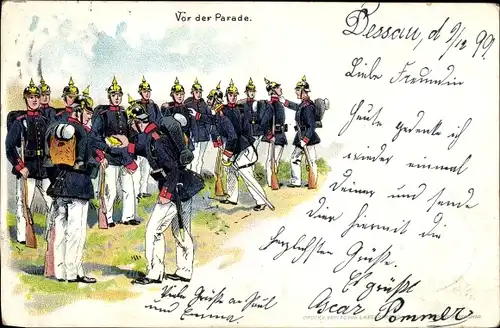 Vor der Parade.
Dessau, d 9/12 99.
Liebe Freundin
Heute gedenke ich
wieder einmal
Deiner und sende
Dir hiermit die
herzlichsten Grüße.
Es grüßt
Oscar Pommer
Viele Grüße an Paul
und Emma.